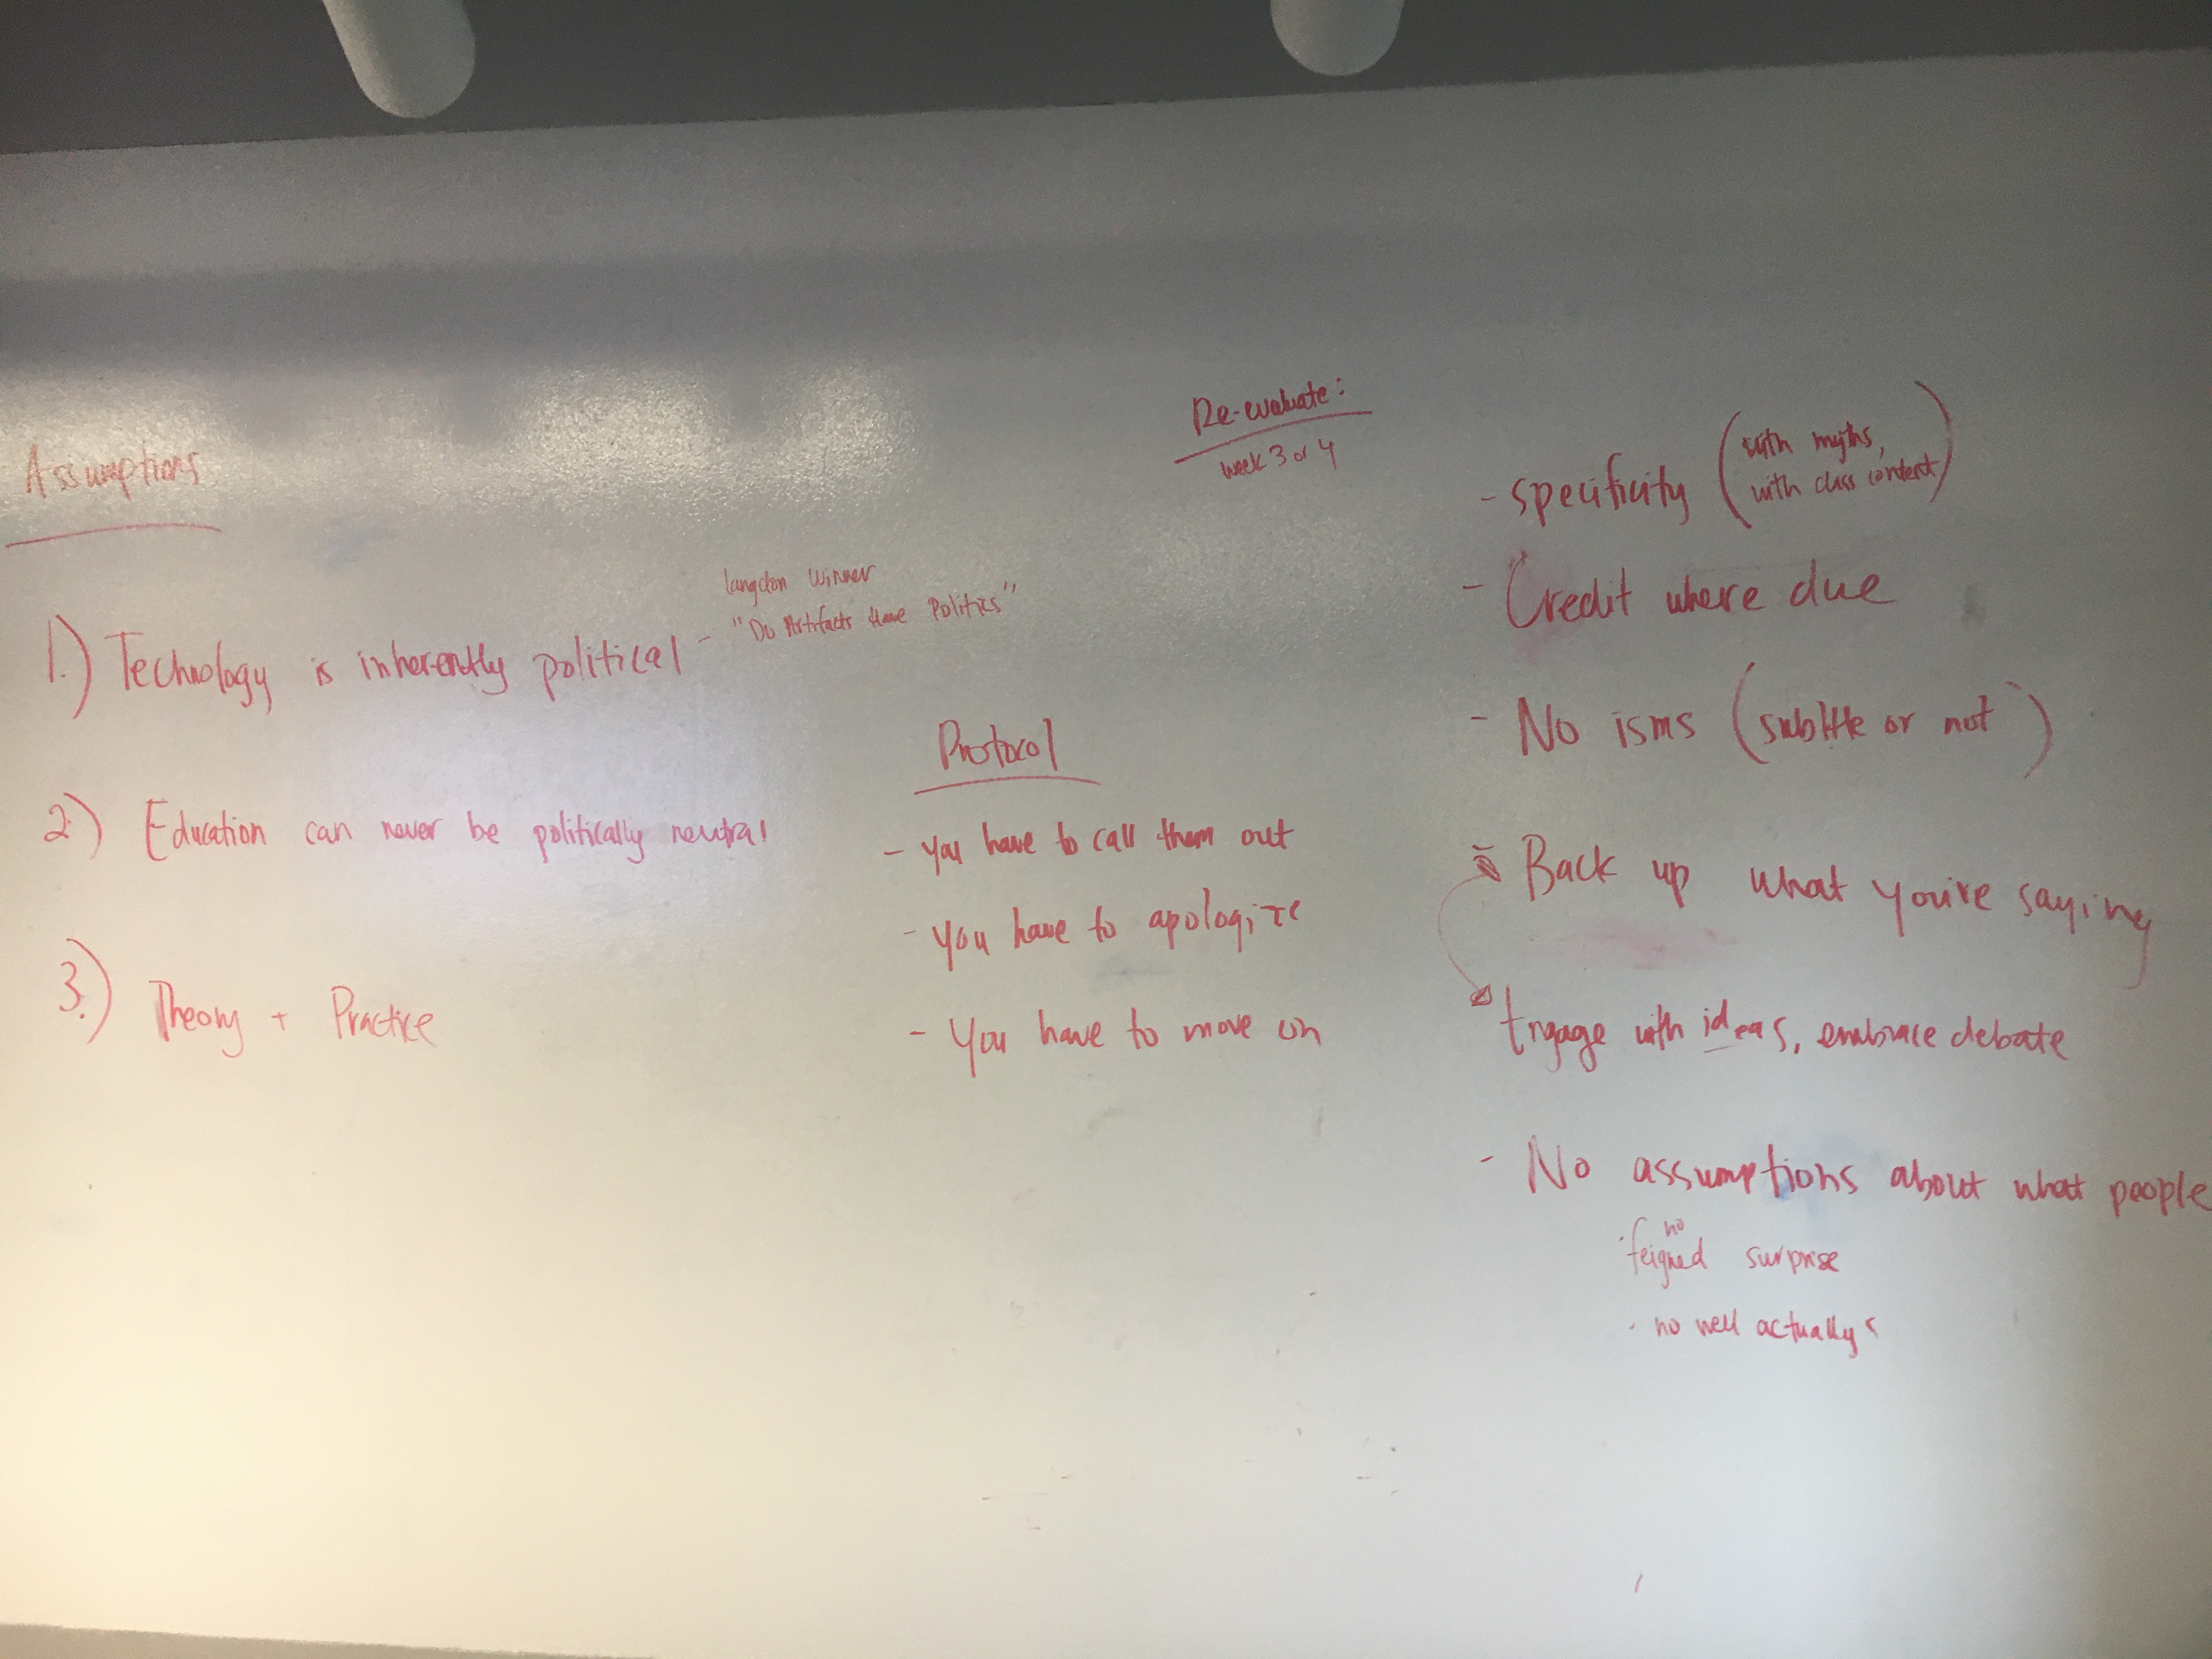 Assumptions
1.) Technology is inherently political - Langdon Winner
"Do Artifacts Have Politics"
2.) Education can never be politically neutral
3.) Theory + Practice
Protocol
- You have to call them out
- You have to apologize
- You have to move on
Re-evaluate:
week 3 or 4
- specificity (with myths,
with class content)
- Credit where due
- No isms (subttle or not)
- Back up what you're saying
Engage with ideas, embrace debate
- No assumptions about what people
· no feigned surprise
· no well actuallys